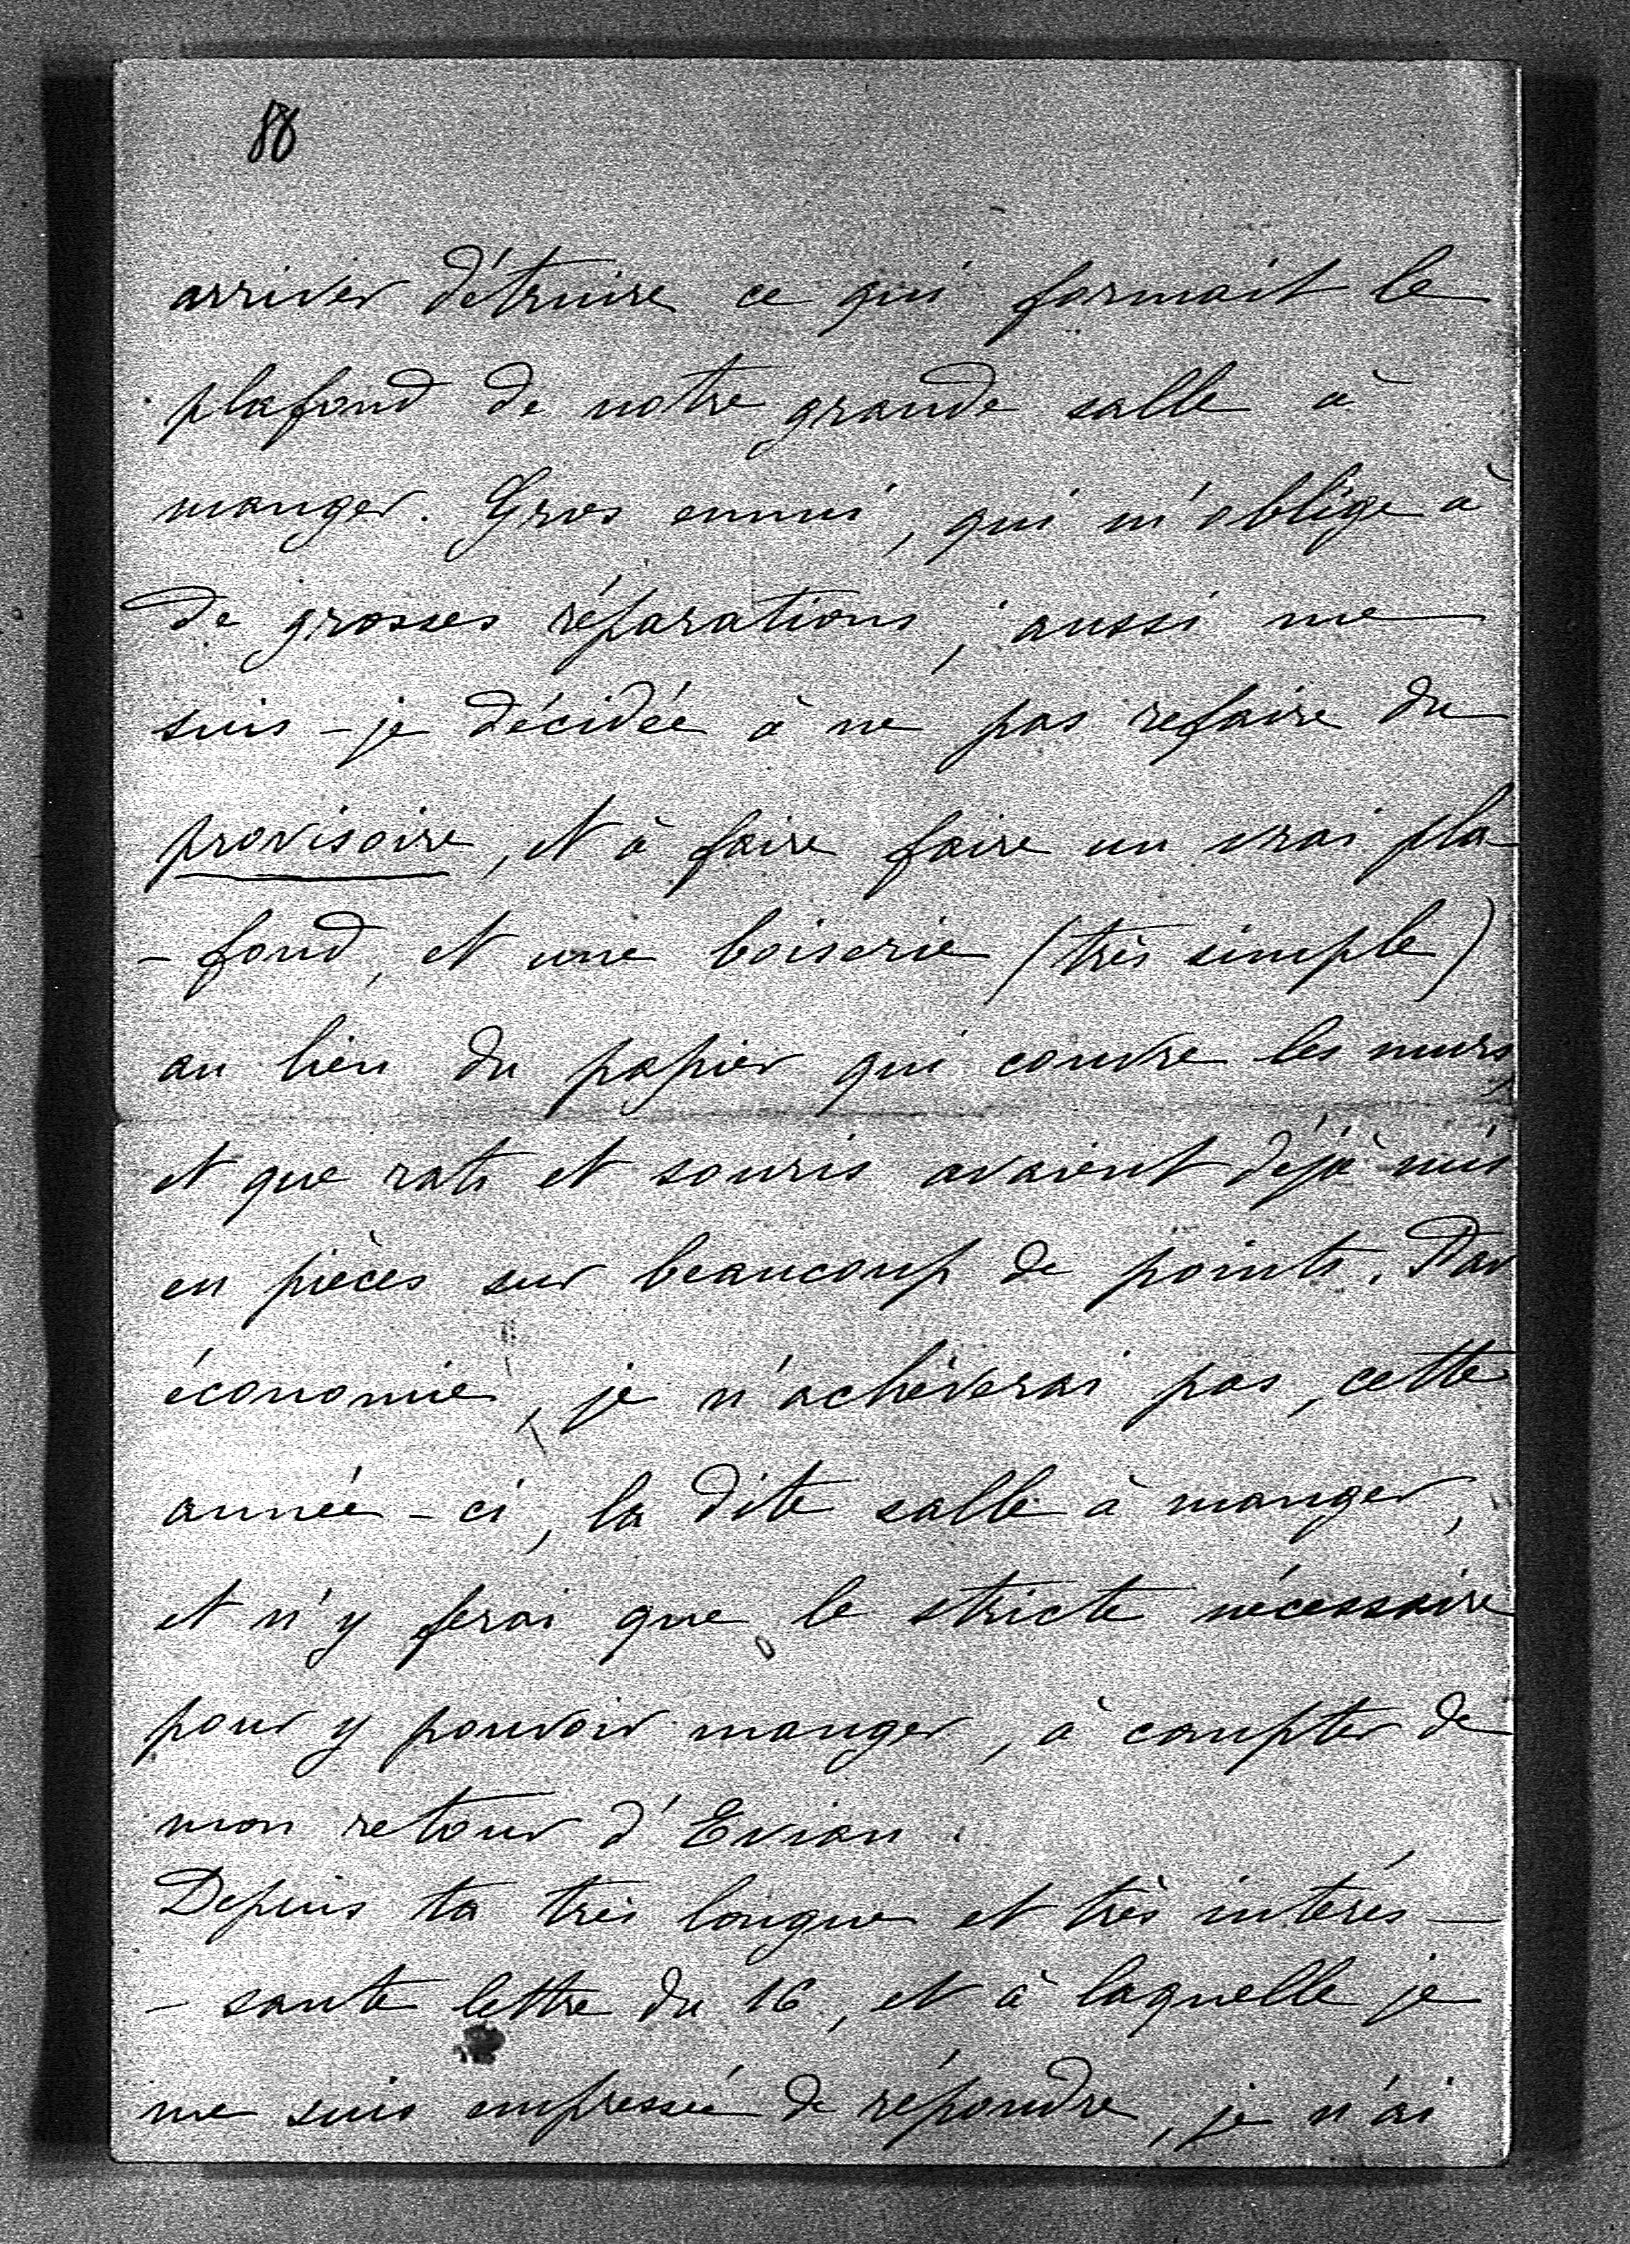 88
arriver détruire ce qui formait le
plafond de notre grande salle à
manger. Gros ennui, qui m'oblige à
de grosses réparations ; aussi me
suis-je décidée à ne pas refaire du
provisoire, et à faire faire un vrai pla-
-fond, et une boiserie (très simple)
au lieu du papier qui couvre les murs,
et que rats et souris avaient déjà mis
en pièces sur beaucoup de points. Par
économie, je n'achèverai pas, cette
année-ci, la dite salle à manger,
et n'y ferai que le stricte nécessaire
pour y pouvoir manger, à compter de
mon retour d'Evian.
Depuis ta très longue et très intéres-
-sante lettre du 16, et à laquelle je
me suis empressée de répondre, je n'ai